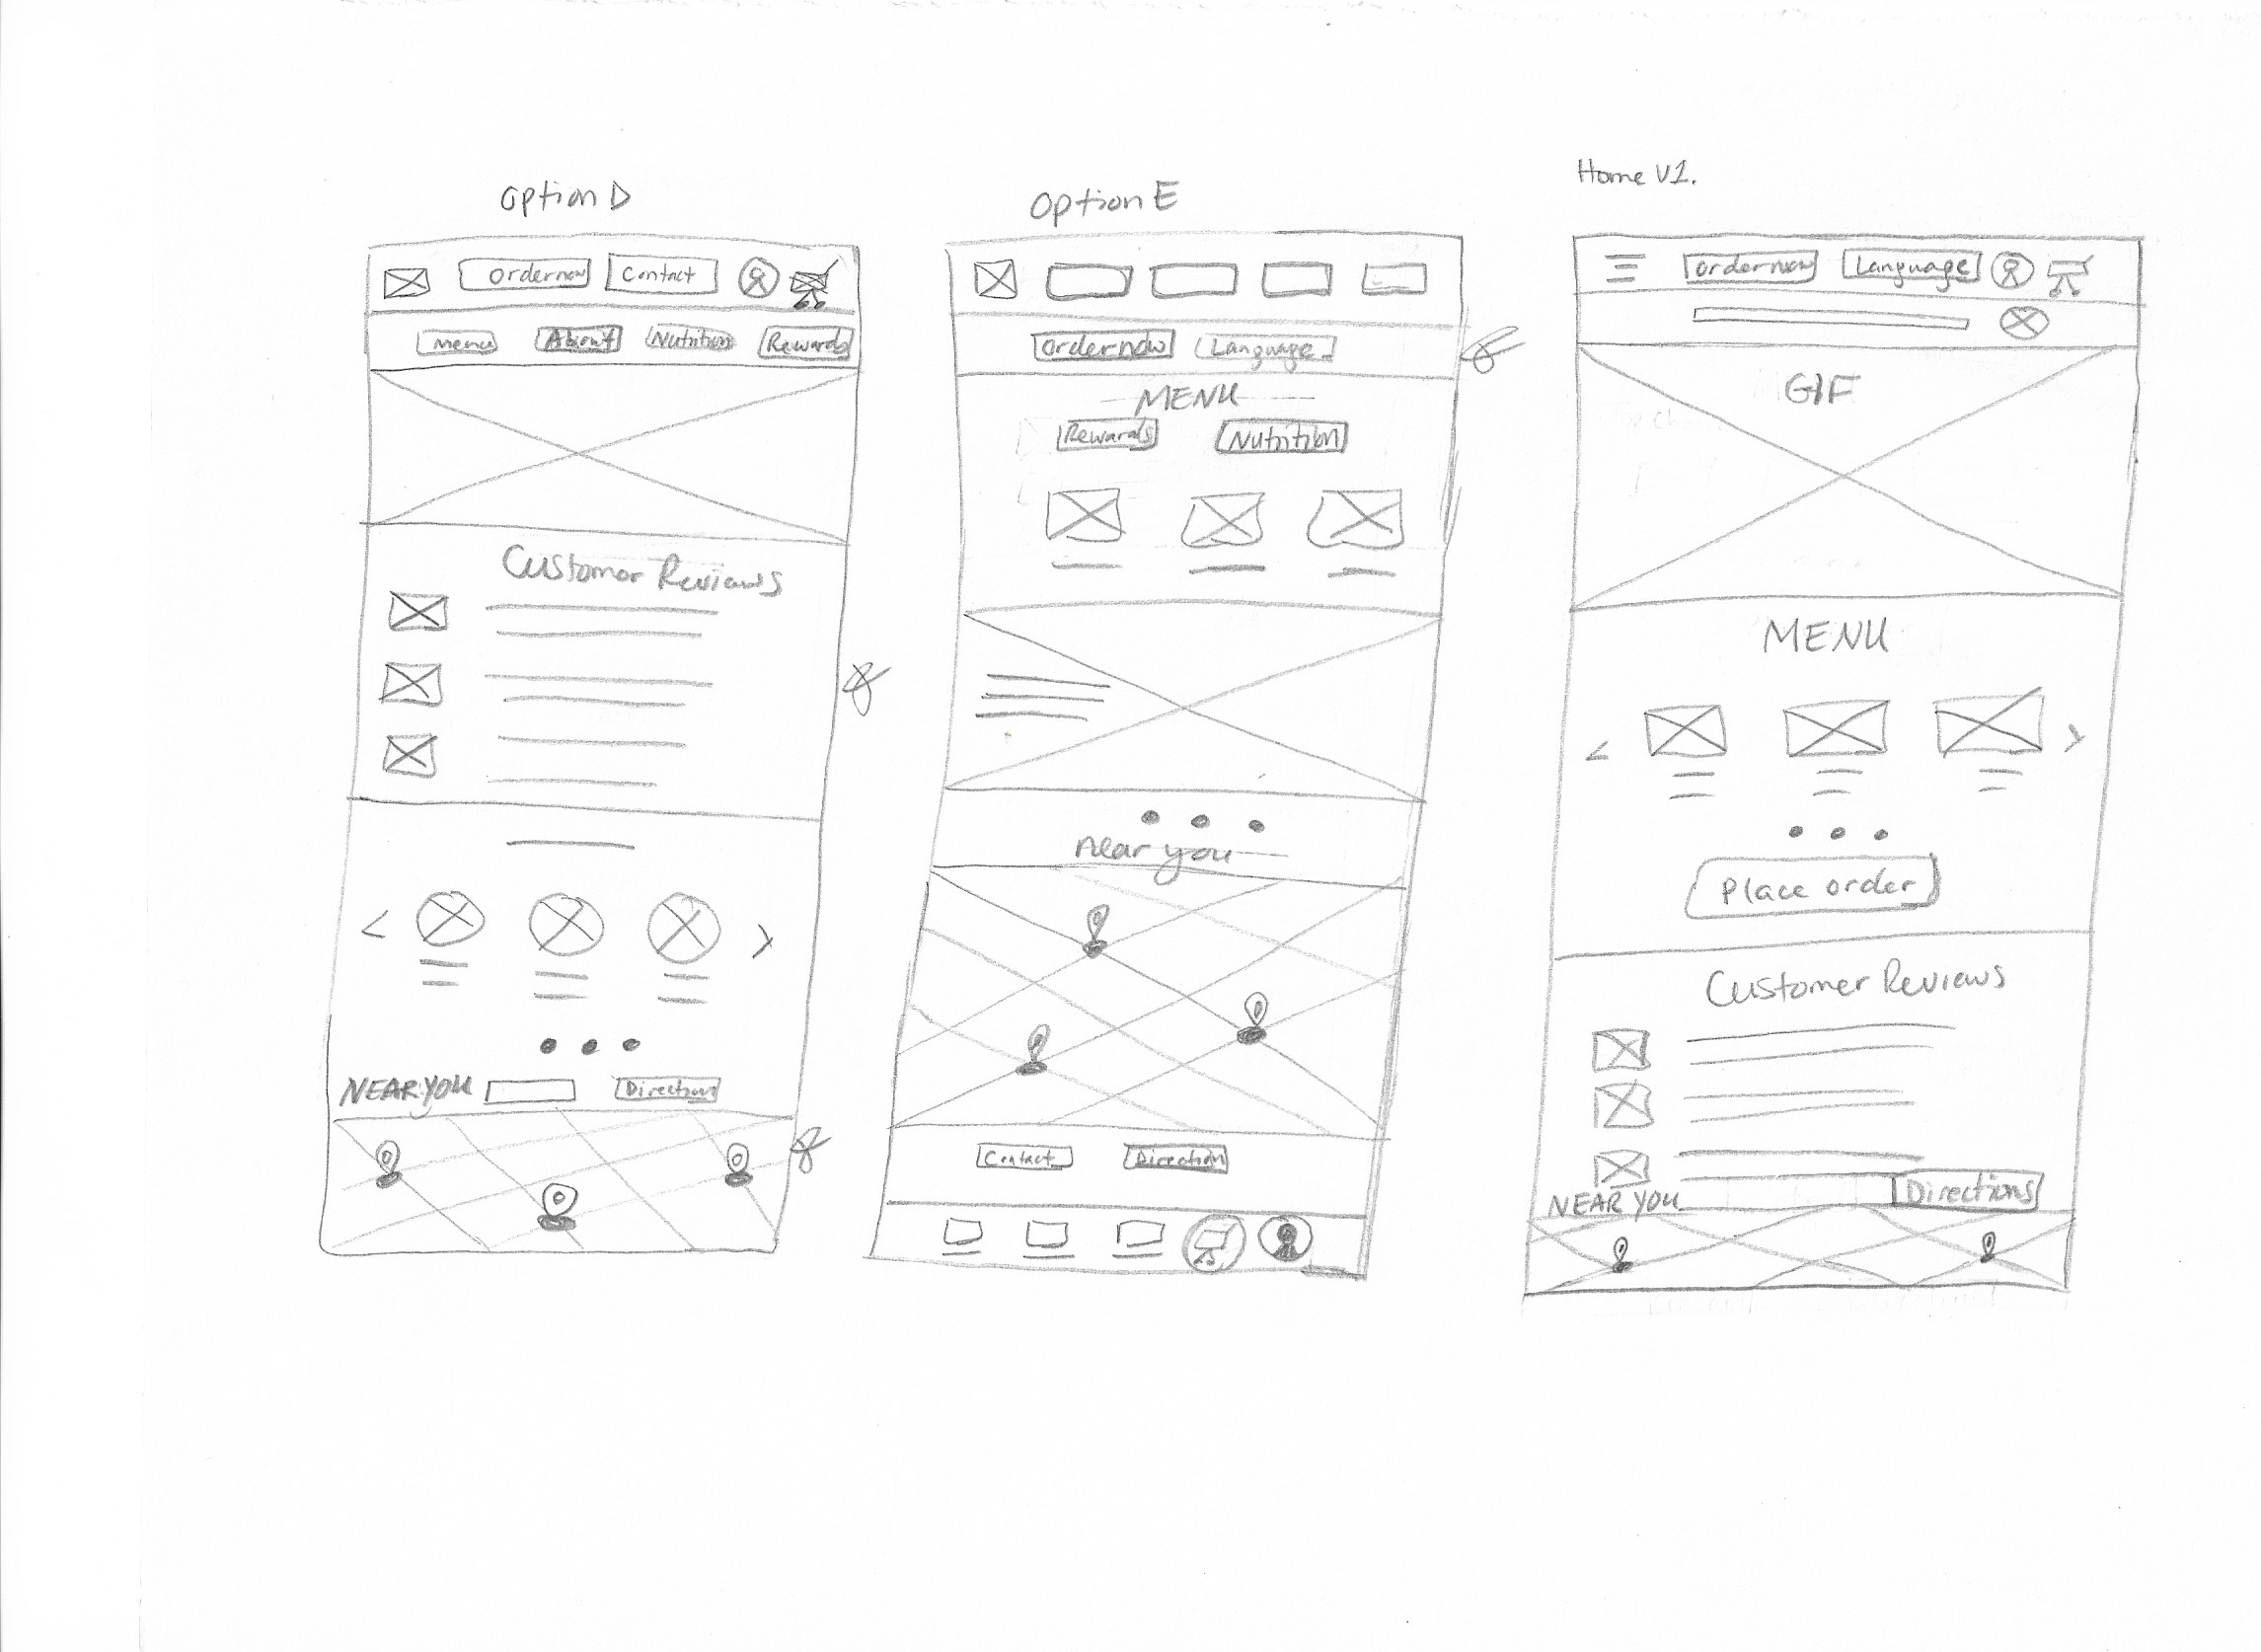 Option D
Order now Contact
Menu About Nutrition Rewards
Customer Reviews
NEAR YOU Direction
Option E
Order now Language
MENU
Rewards Nutrition
near you
Contact Direction
Home V1.
Order Now Language
GIF
MENU
Place order
Customer Reviews
NEAR YOU Directions